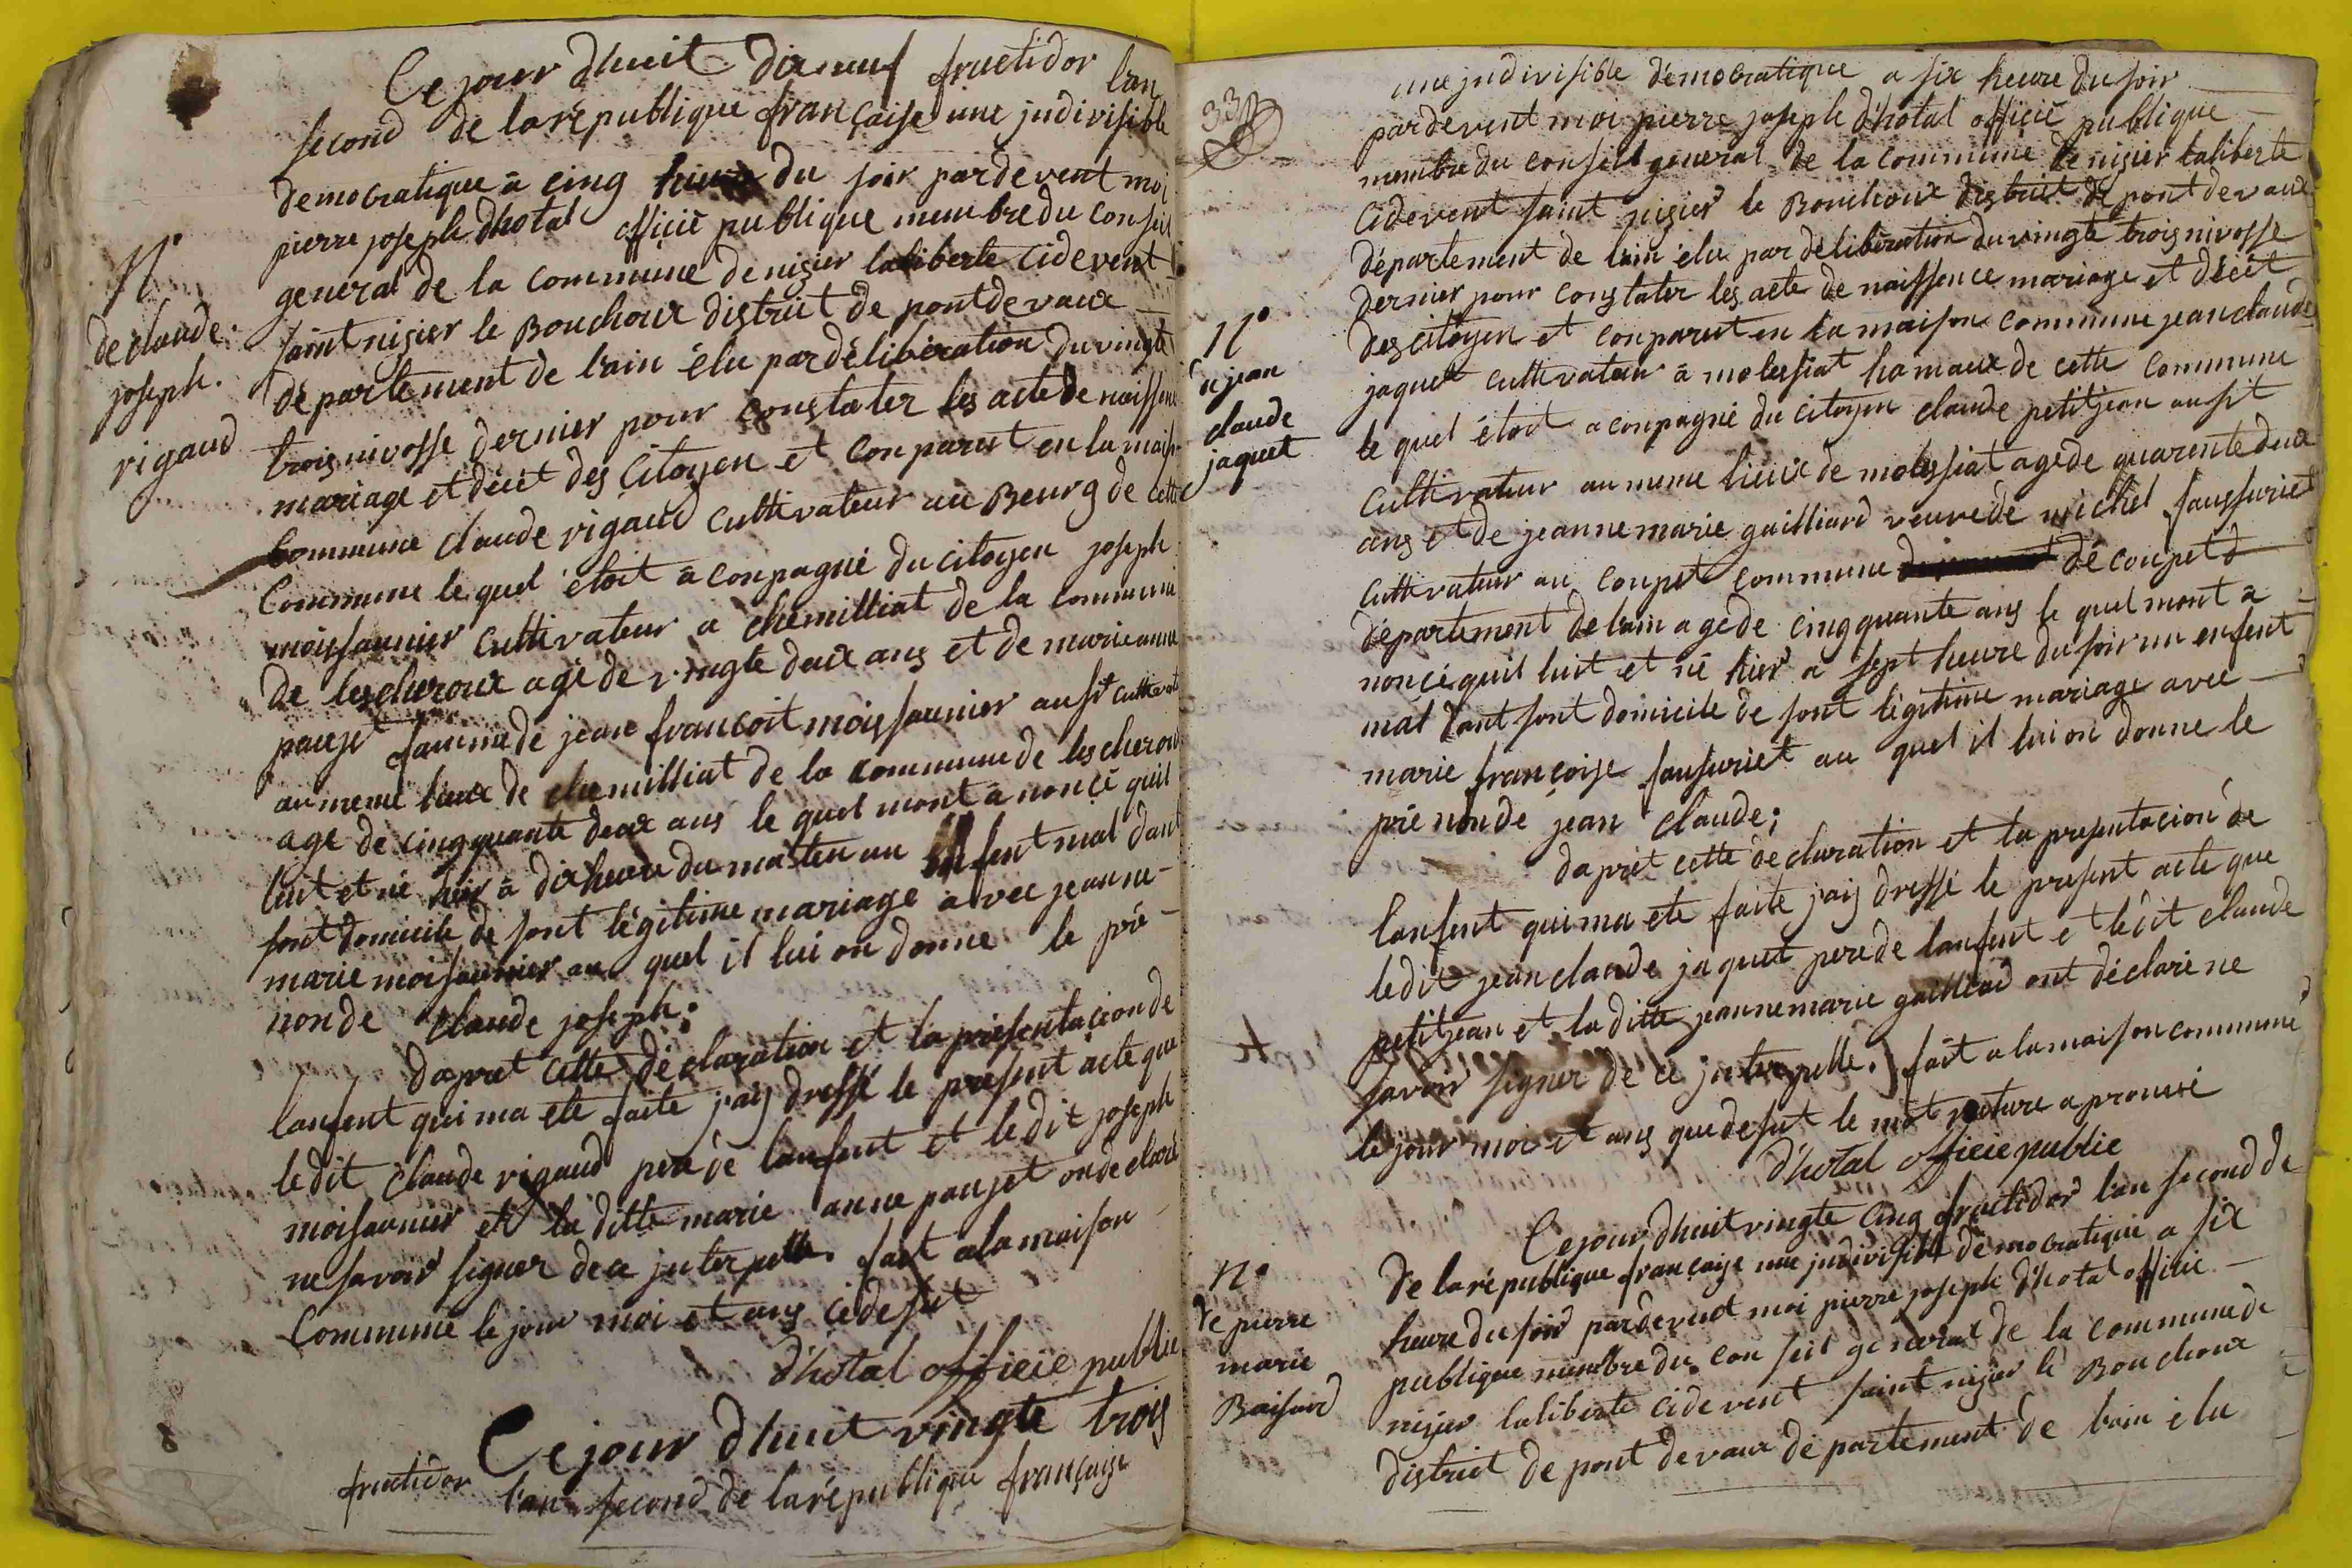 Ce jour dhuit dix neuf fructidor lan
second de la république française une jndivisible
democratique à cinq heure du soir pardevent moi
pierre joseph dhotal officié publique membre du conseil
general de la commune de nizier laliberte cidevent
N°
de claude
joseph.
rigaud
saint nizier le Bouchoux district de pont de vaux
département de l'ain élu par délibération du vingte
trois nivosse dernier pour constater les acte de naissence
mariage et décét des Citoyen et conparut en la maison
Commune claude rigaud cultivateur au Beurg de cette
Commune le quel étoit àconpagné du citoyen joseph
moissonnier cultivateur a chemilliat de la commune
de lescheroux agé de vingte deux ans et de marie anne
paujet famme de jean francoit moissonnier ausit cultivateur
au meme lieux de chemilliat de la commune de lescheroux
age de cingquante deux ans le quel mont à noncé quil
luit et né hier à dix heure du maten un enfent mal dant
sont domicile de sont légitime mariage avec jeanne
marie moisonnier au quel il lui on donne le pré
non de claude joseph;
dapret cette déclaration et la présentacion de
lanfent qui ma ete faite j'aij dressé le present acte que
ledit claude rigaud pere de lanfent et ledit joseph
moisonnier et la ditte marie anne paujet on déclaré
ne savoir signer de ce jnterpelle. fait a la maison
Commune le jour moi et ans cidesut
d'hotal officié public
Ce jour dhuit vingte trois
fructidor l'an second de la république française
33
une jndivisible démocratique a six heure du soir
pardevent moi pierre joseph d'hotal officié publique
membre du conseil general de la commune de nizier laliberte
cidevent saint nizier le Bouchoux district de pont de vaux
département de l'ain élu par délibération du vingte trois nivosse
dernier pour constater les acte de naissence mariage et décét
N°
de jean
claude
jaquet
des citoyen et conparut en la maison commune jean claude
jaquet cultivateur à molessiat hamaux de cette commune
le quel étoit aconpagné du citoyen claude petitjean ausit
cultivateur au meme lieux de molessiat agé de quarente deux
ans et de jeanne marie gailliard veuve de michel saussuriet
cultivateur au coupet commune de coupet d
département de l'ain agé de cingquante ans le quel mont a
noncé quil luit et né hier a sept heure du soir un enfent
mal dant sont domicile de sont légitime mariage avec
marie françoise sausuriet au quel il lui on donne le
pré non de jean claude;
dapret cette déclaration et la presentacion de
lanfent qui ma ete faite jaij dressé le present acte que
ledit jean claude jaquet pere de lanfent et ledit claude
petitjean et la ditte jeanne marie gailliard ont déclaré ne
savoir signer de ce jnterpelle. fait a la maison commune
le jour moi et ans que desut le mot rature aprouvé
d'hotal officié public
Ce jour dhuit vingte cinq fructidor l'an second de
de la république française une jndivisible démocratique a six
N°
de pierre
marie
Boisard
heure du soir pardevent moi pierre joseph d'hotal officié
publique membre du conseil general de la commune de
nizier laliberte cidevent saint nizier le Bouchoux
district de pont de vaux département de l'ain élu